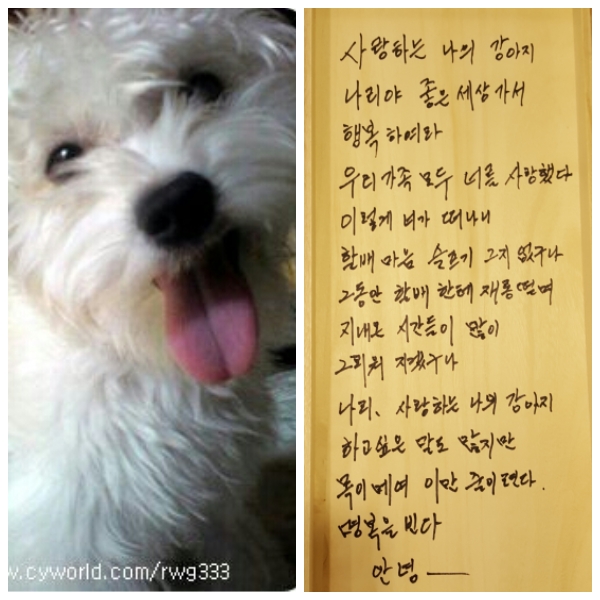 w.cyworld.com/rwg333
사랑하는 나의 강아지
나리야 좋은 세상 가서
행복 하여라
우리가족 모두 너를 사랑했다
이렇게 네가 떠나니
할배 마음 슬프기 그지 없구나
그동안 할배 한테 재롱떨며
지내온 시간들이 많이
그리워 지겠구나
나리, 사랑하는 나의 강아지
하고싶은 말도 많지만
목이 메여 이만 줄이련다.
명복을 빈다
안녕